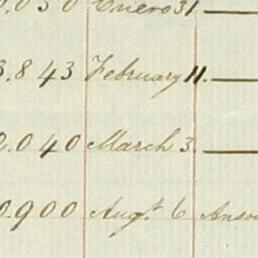 0.030 Enero 31
3.843 February 11.
0.040 March 3.
0.900 Augt. 6